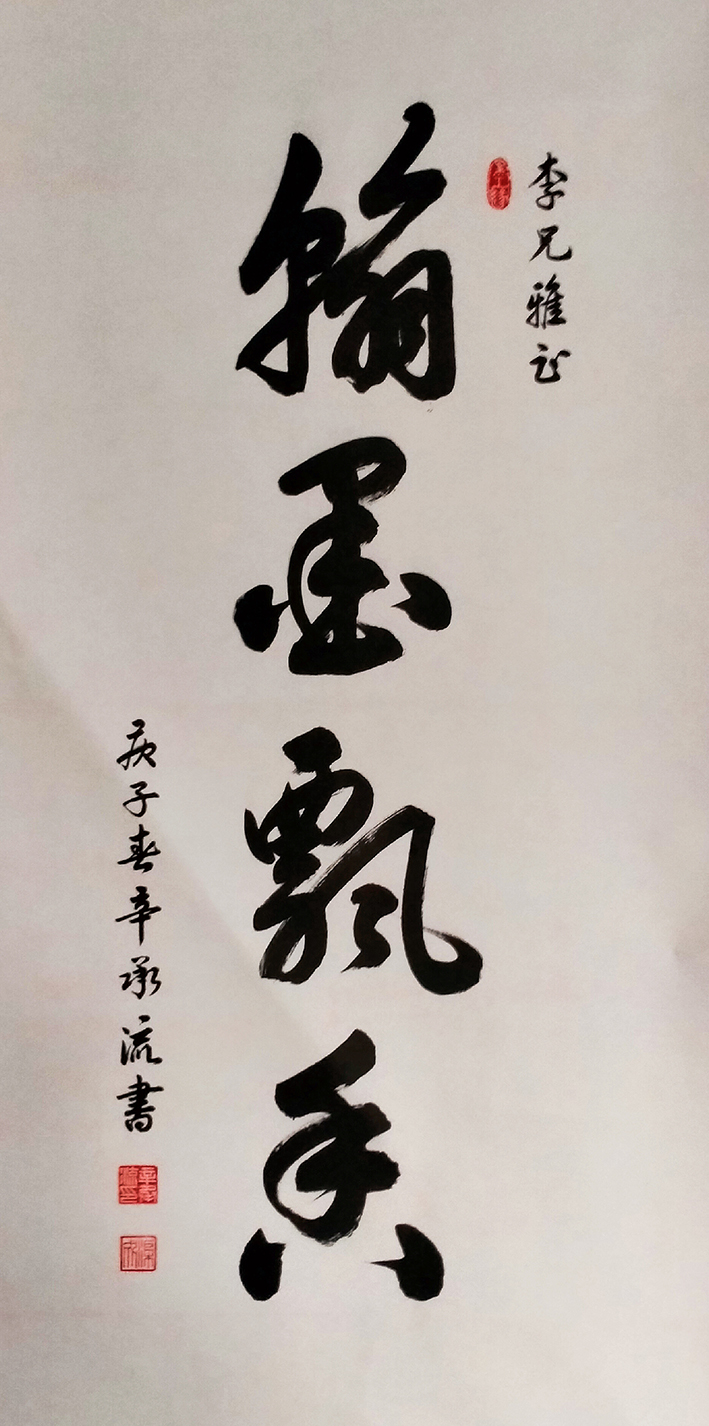 李兄雅正
翰墨飘香
庚子春辛承流書